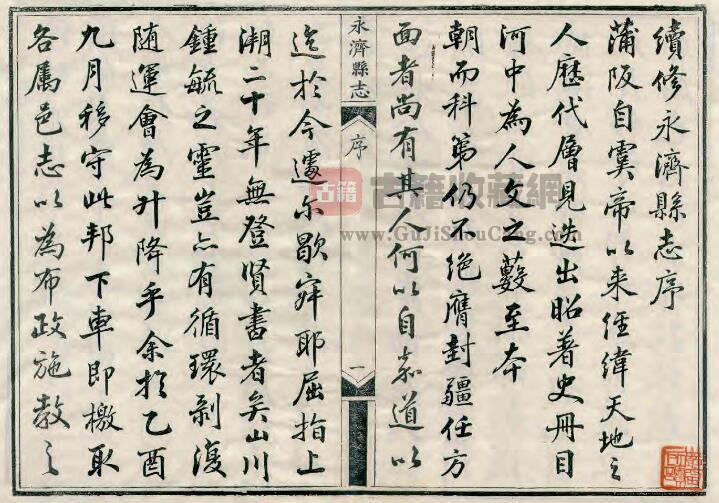 續修永濟縣志序
蒲阪自虞帝以來經緯天地之
人歷代層見迭出昭著史冊目
河中為人文之藪至本
朝而科第仍不絕膺封疆任方
面者尚有其人何以自嘉道以
永濟縣志
序
一
迄於今遽尔歇寂耶屈指上
溯二十年無登賢書者矣山川
鍾毓之靈豈亦有循環剝復
随運會為升降乎余於乙酉
九月移守此邦下車即檄取
各属邑志以為布政施教之
古籍 古籍收藏網
www.GuJiShouCang.com